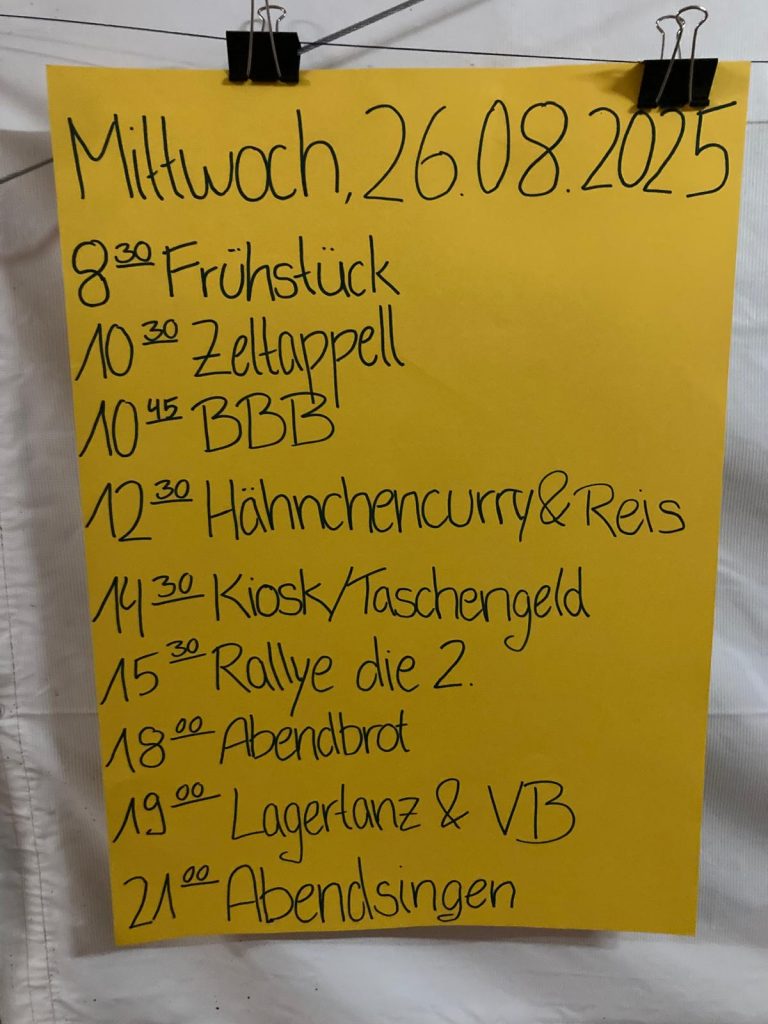 Mittwoch, 26.08.2025
8³⁰ Frühstück
10³⁰ Zeltappell
10⁴⁵ BBB
12³⁰ Hähnchencurry & Reis
14³⁰ Kiosk/Taschengeld
15³⁰ Rallye die 2.
18⁰⁰ Abendbrot
19⁰⁰ Lagertanz & VB
21⁰⁰ Abendsingen